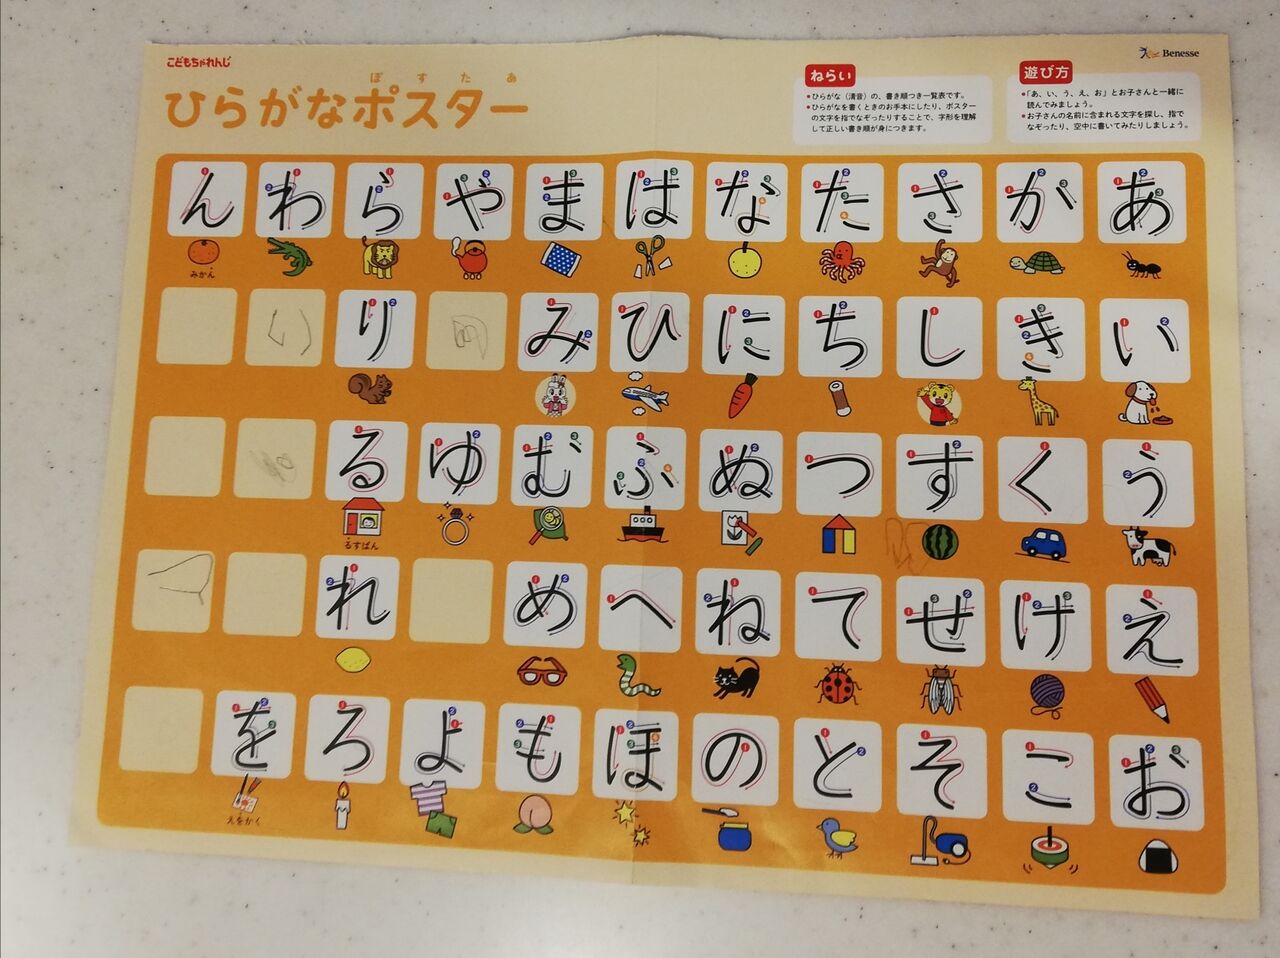 こどもちゃれんじ
ぽすたあ
ひらがなポスター
ねらい
●ひらがな（清音）の、書き順つき一覧表です。
●ひらがなを書くときのお手本にしたり、ポスター
の文字を指でなぞったりすることで、字形を理解
して正しい書き順が身につきます。
遊び方
●「あ、い、う、え、お」とお子さんと一緒に
読んでみましょう。
●お子さんの名前に含まれる文字を探し、指で
なぞったり、空中に書いてみたりしましょう。
Benesse
あ い う え お
か き く け こ
さ し す せ そ
た ち つ て と
な に ぬ ね の
は ひ ふ へ ほ
ま み む め も
や ゆ よ
ら り る れ ろ
るすばん
わ い を
えをかく
ん
みかん